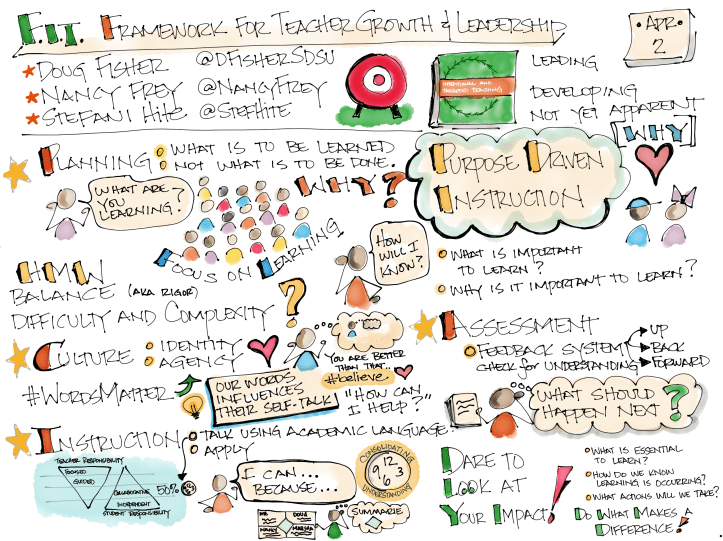 F.I.T. FRAMEWORK FOR TEACHER GROWTH & LEADERSHIP
APR
2
DOUG FISHER @DFISHERSDSU
NANCY FREY @NANCYFREY
STEFANI HITE @STEFHITE
INTENTIONAL AND
TARGETED TEACHING
LEADING
DEVELOPING
NOT YET APPARENT
PLANNING: WHAT IS TO BE LEARNED
NOT WHAT IS TO BE DONE.
WHAT ARE
YOU
LEARNING?
WHY?
FOCUS ON LEARNING
PURPOSE DRIVEN
INSTRUCTION
[WHY]
HOW
WILL I
KNOW?
WHAT IS IMPORTANT
TO LEARN?
WHY IS IT IMPORTANT TO LEARN?
HMW
BALANCE (AKA RIGOR)
DIFFICULTY AND COMPLEXITY?
CULTURE: IDENTITY
AGENCY
YOU ARE BETTER
THAN THAT...
#believe
#WORDSMATTER
OUR WORDS
INFLUENCES
THEIR SELF-TALK
"HOW CAN
I HELP?"
ASSESSMENT
FEEDBACK SYSTEM
CHECK for UNDERSTANDING
UP
BACK
FORWARD
WHAT SHOULD
HAPPEN NEXT?
INSTRUCTION TALK USING ACADEMIC LANGUAGE
APPLY
TEACHER RESPONSIBILITY
FOCUSED
GUIDED
COLLABORATIVE
INDEPENDENT
STUDENT RESPONSIBILITY
50%
I CAN...
BECAUSE...
CONSOLIDATING
UNDERSTANDING
12
9 3
6
DOUG
NANCY
SUMMARIE
DARE TO
LOOK AT
YOUR IMPACT!
WHAT IS ESSENTIAL
TO LEARN?
HOW DO WE KNOW
LEARNING IS OCCURRING?
WHAT ACTIONS WILL WE TAKE?
DO WHAT MAKES A
DIFFERENCE!